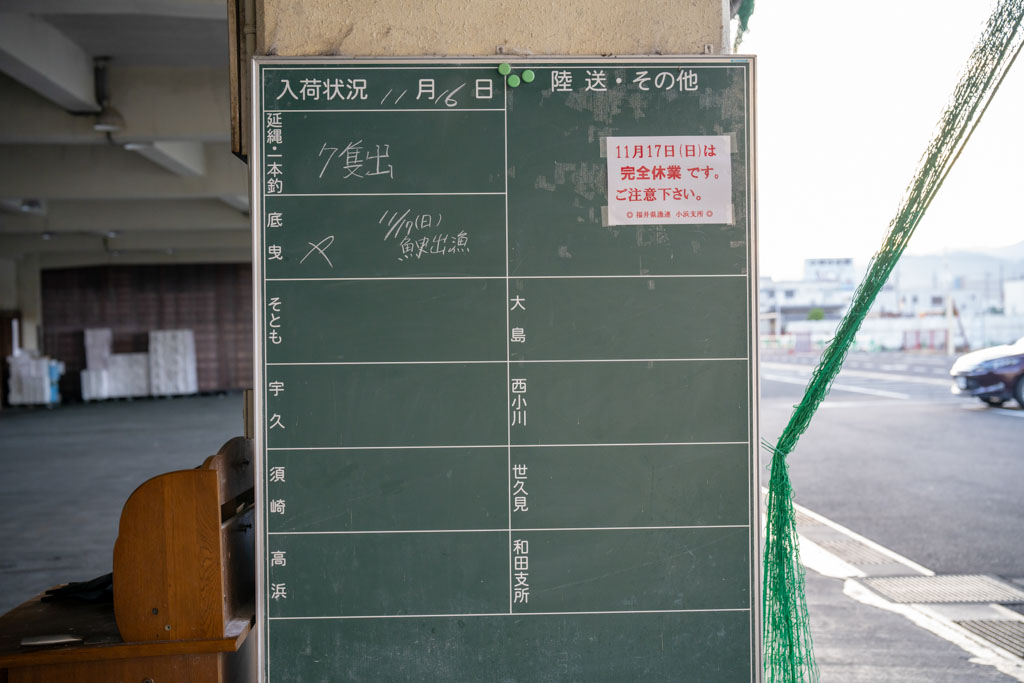 入荷状況 11月16日
陸送・その他
延縄・一本釣
7隻出
11月17日(日)は
完全休業です。
ご注意下さい。
◎福井県漁連 小浜支所◎
底曳
×
11/17(日)
出漁
そとも
大島
宇久
西小川
須崎
世久見
高浜
和田支所